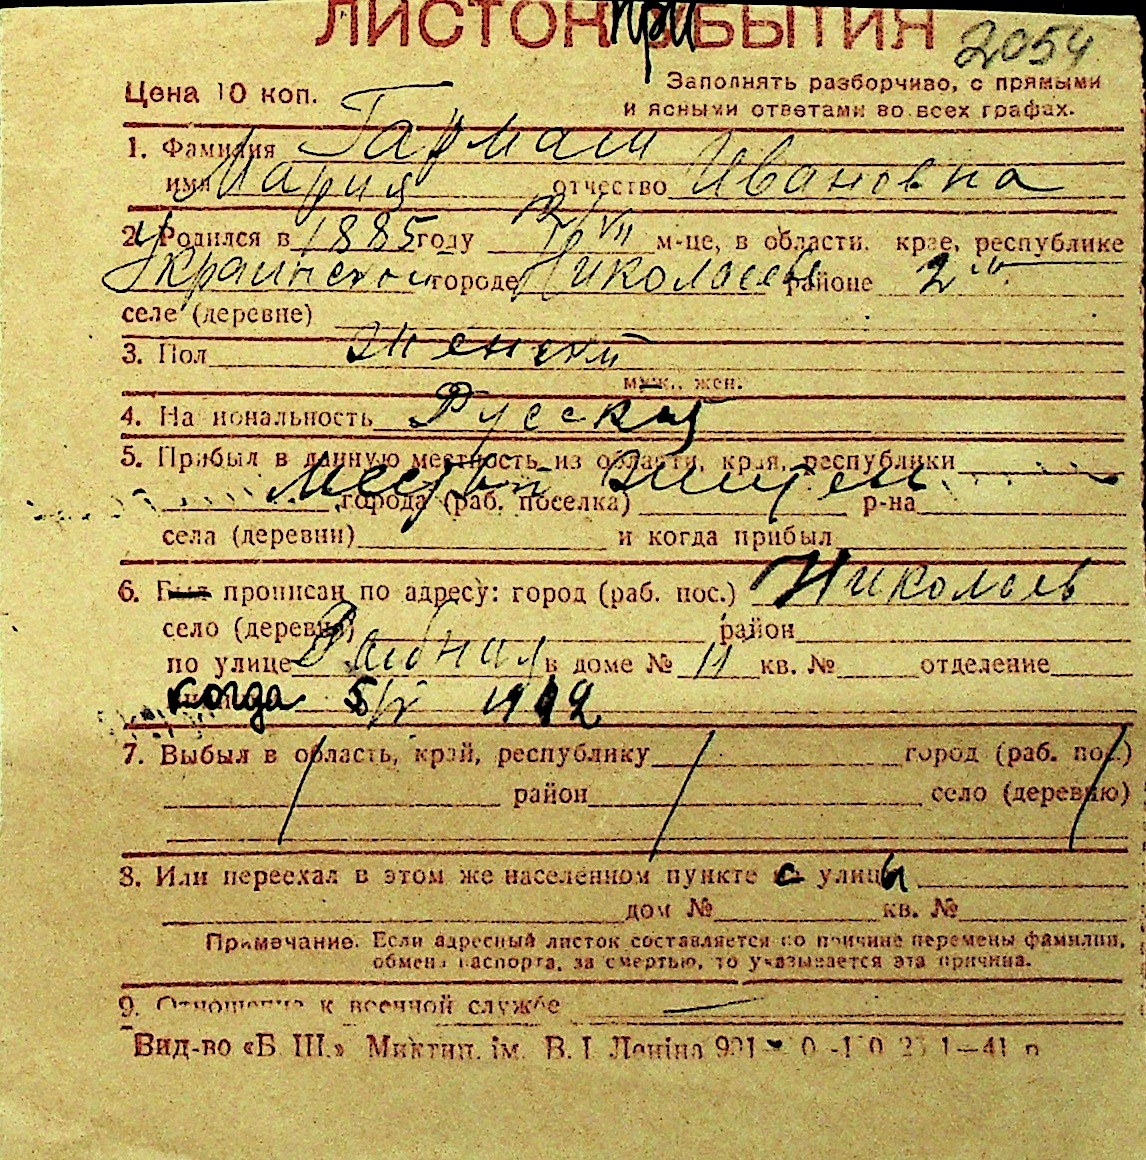 ЛИСТОК при БЫТИЯ 2054
Цена 10 коп.
Заполнять разборчиво, с прямыми
и ясными ответами во всех графах.
1. Фамилия Гармаш
имя Мария отчество Ивановна
2. Родился в 1885 году VII м-це, в области, крае, республике
Украинской городе Николаеве районе 2
селе (деревне)
3. Пол женский
муж., жен.
4. Национальность Русский
5. Прибыл в данную местность из области, края, республики
Местный житель
города (раб. поселка) р-на
села (деревни) и когда прибыл
6. Был прописан по адресу: город (раб. пос.) Николаев
село (деревня) район
по улице в доме № 11 кв. № отделение
когда 1942
7. Выбыл в область, край, республику город (раб. пос.)
район село (деревню)
8. Или переехал в этом же населенном пункте с улицы
дом № кв. №
Примечание. Если адресный листок составляется по причине перемены фамилии,
обмена паспорта, за смертью, то указывается эта причина.
9. Отношение к военной службе
Вид-во «Б. Ш.» Миктип. ім. В. І. Леніна